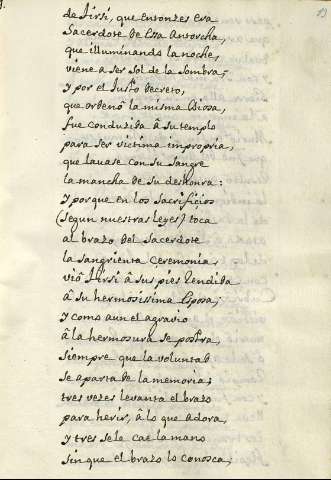 de Tirsi, que entonzes era
Sacerdote de esa Antorcha,
que illuminando la noche,
viene a ser sol de la sombra;
y por el Justo Decreto,
que ordenò la misma Diosa,
fue conduzida â su templo
para ser victima impropria,
que lauase con su sangre
la mancha de su deshonra:
y porque en los sacrificios
(segun nuestras leyes) toca
al brazo del Sacerdote
la sangrienta ceremonia,
viò Tirsi â sus pies rendida
â su hermosissima esposa;
y como aun el agravio
â la hermosura se postra,
siempre que la voluntad
se aparta de la memoria;
tres vezes levanta el brazo
para herir, â lo que adora,
y tres se le cae la mano
sin que el brazo lo conosca;